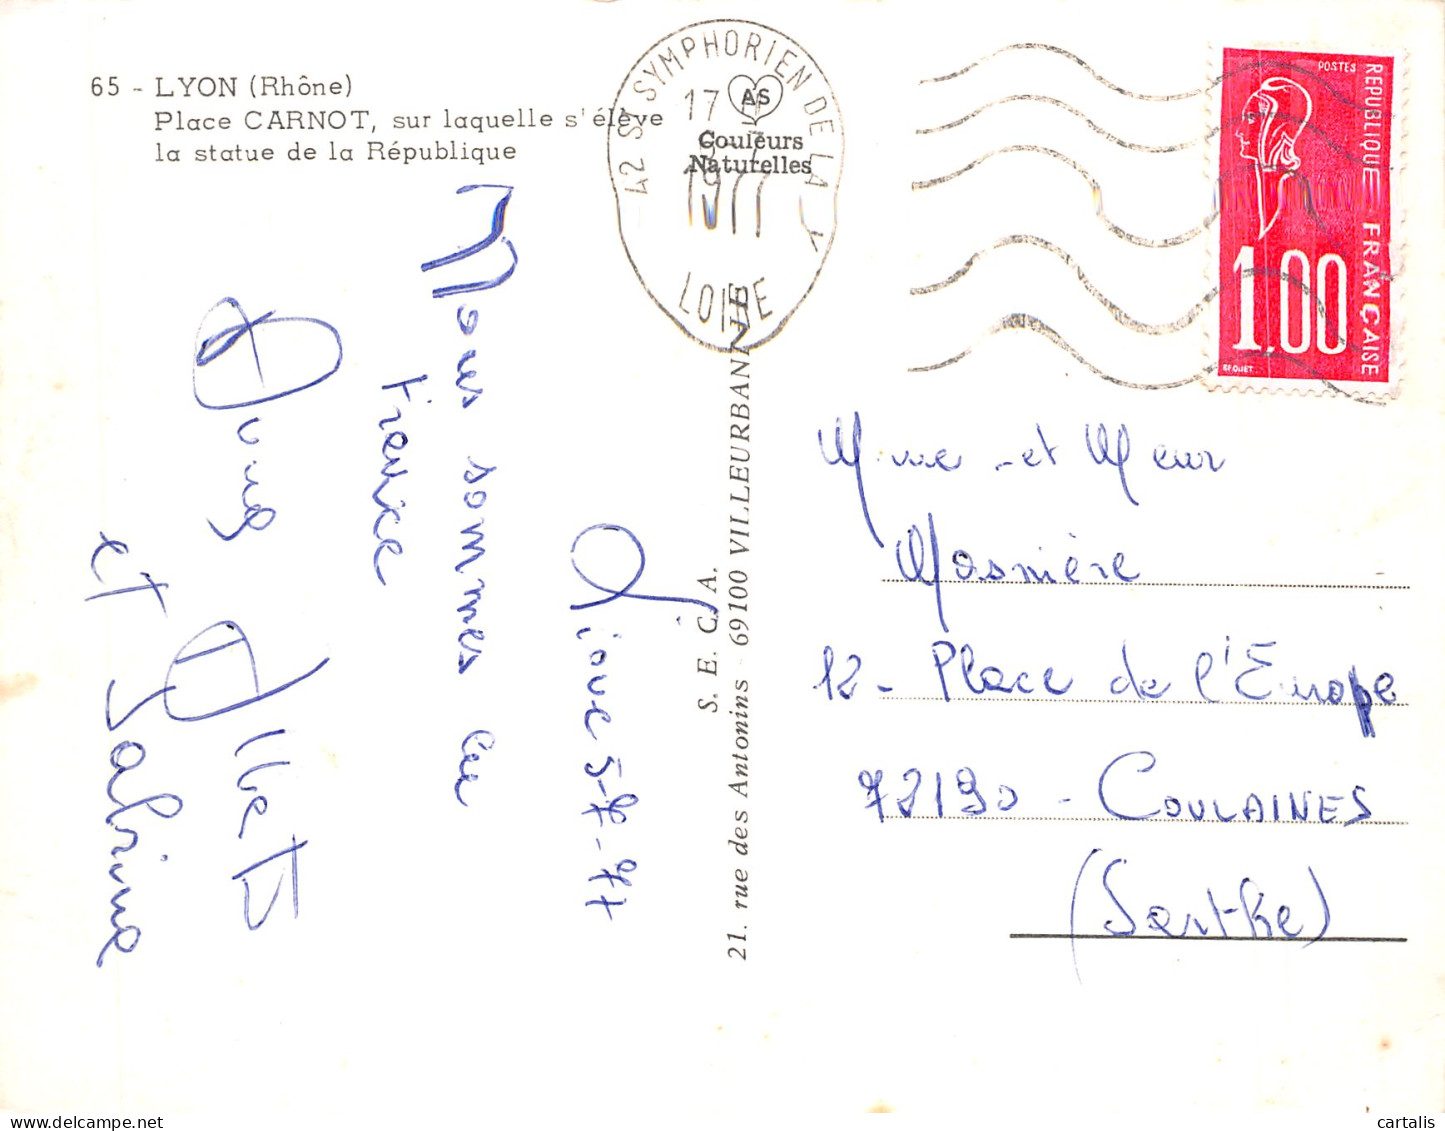 65 - LYON (Rhône)
Place CARNOT, sur laquelle s'élève
la statue de la République
42 ST SYMPHORIEN DE LAY
17 H
1977
LOIRE
AS
Couleurs
Naturelles
POSTES
REPUBLIQUE FRANÇAISE
1,00
BEQUET
5-7-77
Nous sommes en
France
Albert
et Sabine
S. E. C. A.
21. rue des Antonins - 69100 VILLEURBANNE
Mme et Meur
Mosnière
12 - Place de l'Europe
72190 - COULAINES
(Sarthe)
cartalis